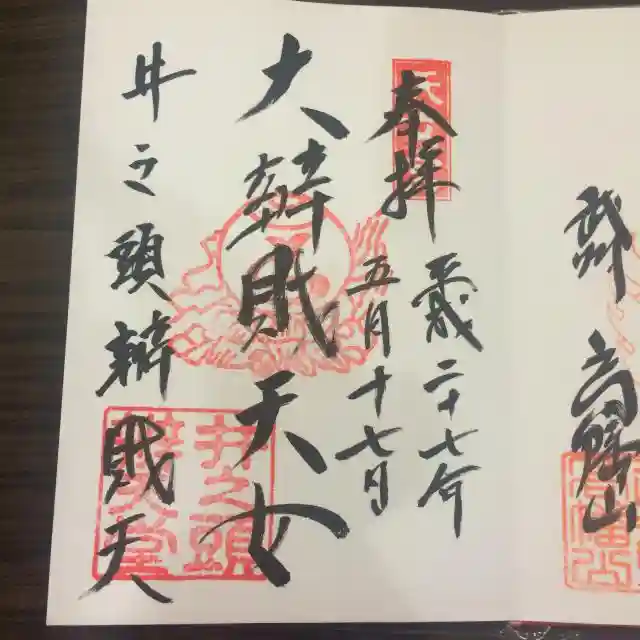 武州
高幡山
奉拝
平成二十七年
五月十七日
大辨財天女
井之頭辨財天
井之頭